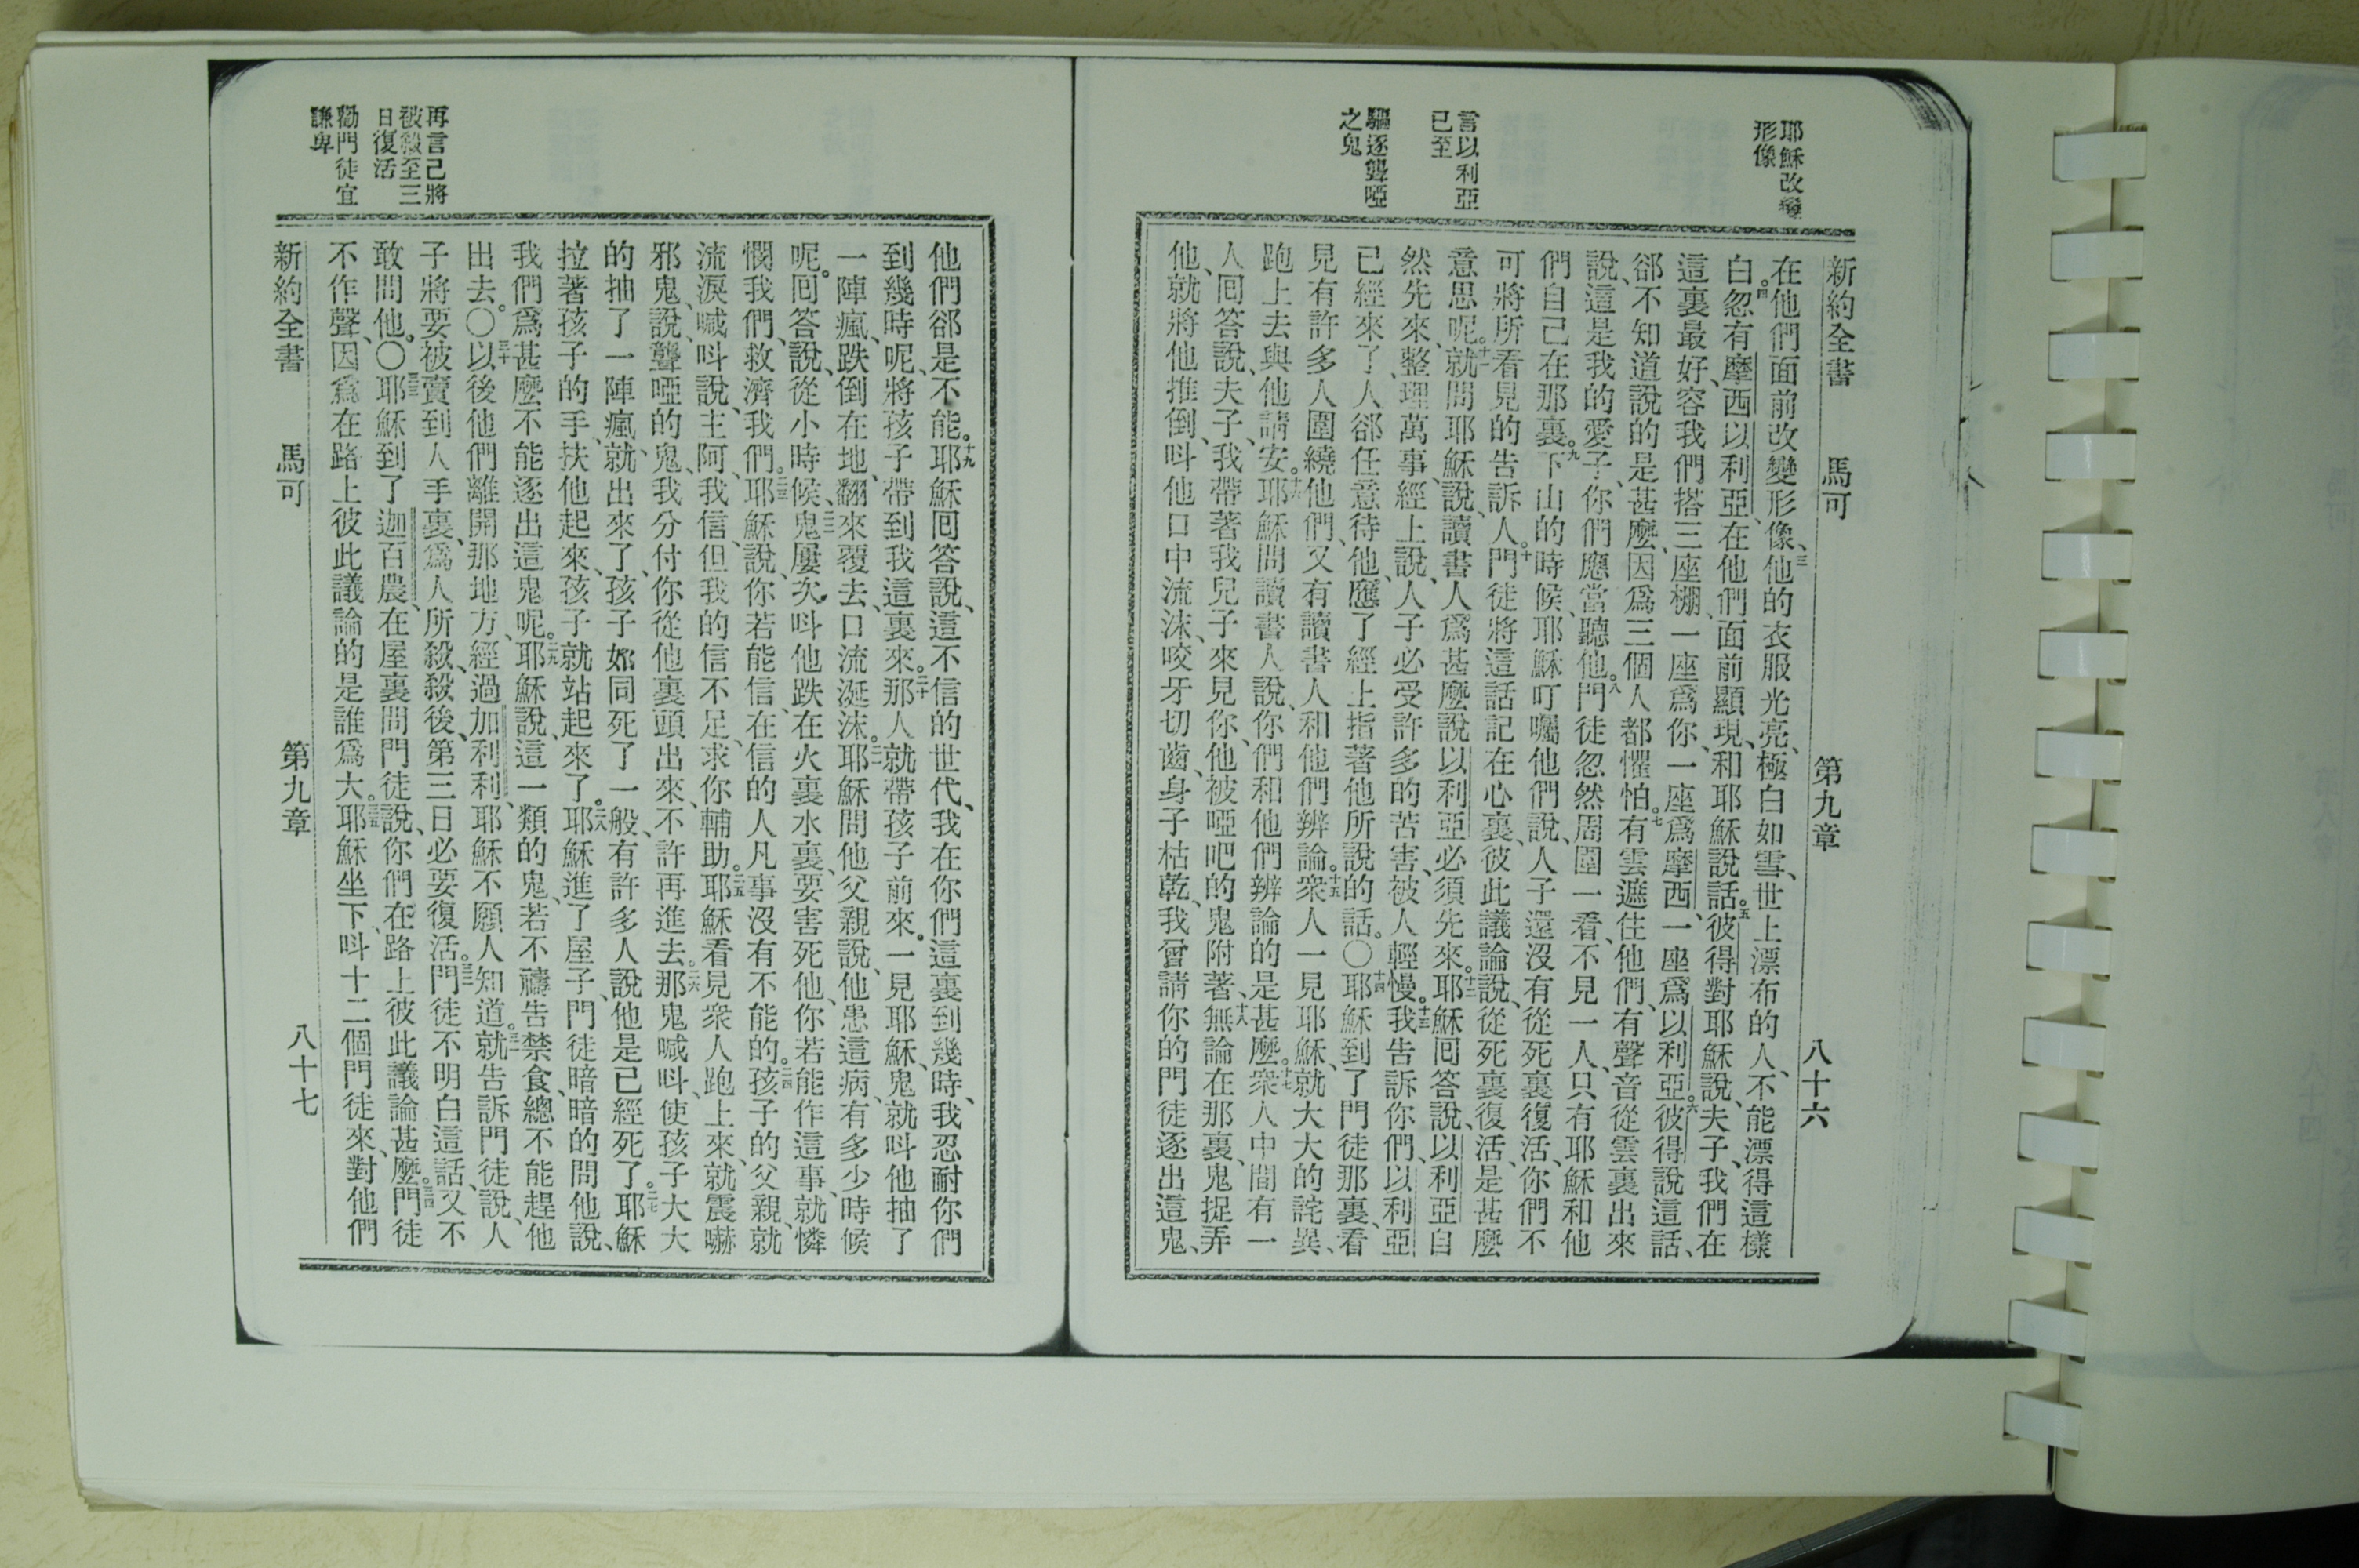 耶穌改變
形像
言以利亞
已至
驅逐聾啞
之鬼
新約全書 馬可 第九章 八十六
在他們面前改變形像、三他的衣服光亮、極白如雪、世上漂布的人、不能漂得這樣
白。四忽有摩西以利亞、在他們面前顯現、和耶穌說話。五彼得對耶穌說、夫子、我們在
這裏最好、容我們搭三座棚、一座爲你、一座爲摩西、一座爲以利亞。六彼得說這話、
郤不知道說的是甚麼、因爲三個人都懼怕。七有雲遮住他們、有聲音從雲裏出來
說、這是我的愛子、你們應當聽他。八門徒忽然周圍一看、不見一人、只有耶穌和他
們自己在那裏。九下山的時候、耶穌叮囑他們說、人子還沒有從死裏復活、你們不
可將所看見的告訴人。十門徒將這話記在心裏、彼此議論說、從死裏復活、是甚麼
意思呢。十一就問耶穌說、讀書人爲甚麼說以利亞必須先來。十二耶穌囘答說、以利亞自
然先來、整理萬事、經上說、人子必受許多的苦害、被人輕慢。十三我告訴你們、以利亞
已經來了、人郤任意待他、應了經上指著他所說的話。〇十四耶穌到了門徒那裏、看
見有許多人圍繞他們、又有讀書人和他們辨論。十五衆人一見耶穌、就大大的詫異、
跑上去與他請安。十六耶穌問讀書人說、你們和他們辨論的是甚麼。十七衆人中間有一
人囘答說、夫子、我帶著我兒子來見你、他被啞吧的鬼附著、十八無論在那裏、鬼捉弄
他、就將他推倒、呌他口中流沫、咬牙切齒、身子枯乾、我曾請你的門徒逐出這鬼、
再言己將
被殺至三
日復活
勸門徒宜
謙卑
他們郤是不能。十九耶穌囘答說、這不信的世代、我在你們這裏到幾時、我忍耐你們
到幾時呢、將孩子帶到我這裏來。二十那人就帶孩子前來。一見耶穌、鬼就呌他抽了
一陣瘋、跌倒在地、翻來覆去、口流涎沫。二一耶穌問他父親說、他患這病、有多少時候
呢。囘答說、從小時候。二二鬼屢次呌他跌在火裏水裏、要害死他、你若能作這事、就憐
憫我們、救濟我們。二三耶穌說、你若能信、在信的人凡事沒有不能的。二四孩子的父親、就
流淚喊呌說、主阿、我信、但我的信不足、求你輔助。二五耶穌看見衆人跑上來、就震嚇
邪鬼、說、聾啞的鬼、我分付你從他裏頭出來、不許再進去。二六那鬼喊呌、使孩子大大
的抽了一陣瘋、就出來了、孩子如同死了一般、有許多人說他是已經死了。二七耶穌
拉著孩子的手、扶他起來、孩子就站起來了。二八耶穌進了屋子、門徒暗暗的問他說、
我們爲甚麼不能逐出這鬼呢。二九耶穌說、這一類的鬼、若不禱告禁食、總不能趕他
出去。〇三十以後他們離開那地方、經過加利利、耶穌不願人知道。三一就告訴門徒說、人
子將要被賣到人手裏、爲人所殺、殺後、第三日必要復活。三二門徒不明白這話、又不
敢問他。〇三三耶穌到了迦百農、在屋裏問門徒說、你們在路上彼此議論甚麼。三四門徒
不作聲、因爲在路上彼此議論的是誰爲大。三五耶穌坐下、呌十二個門徒來、對他們
新約全書 馬可 第九章 八十七